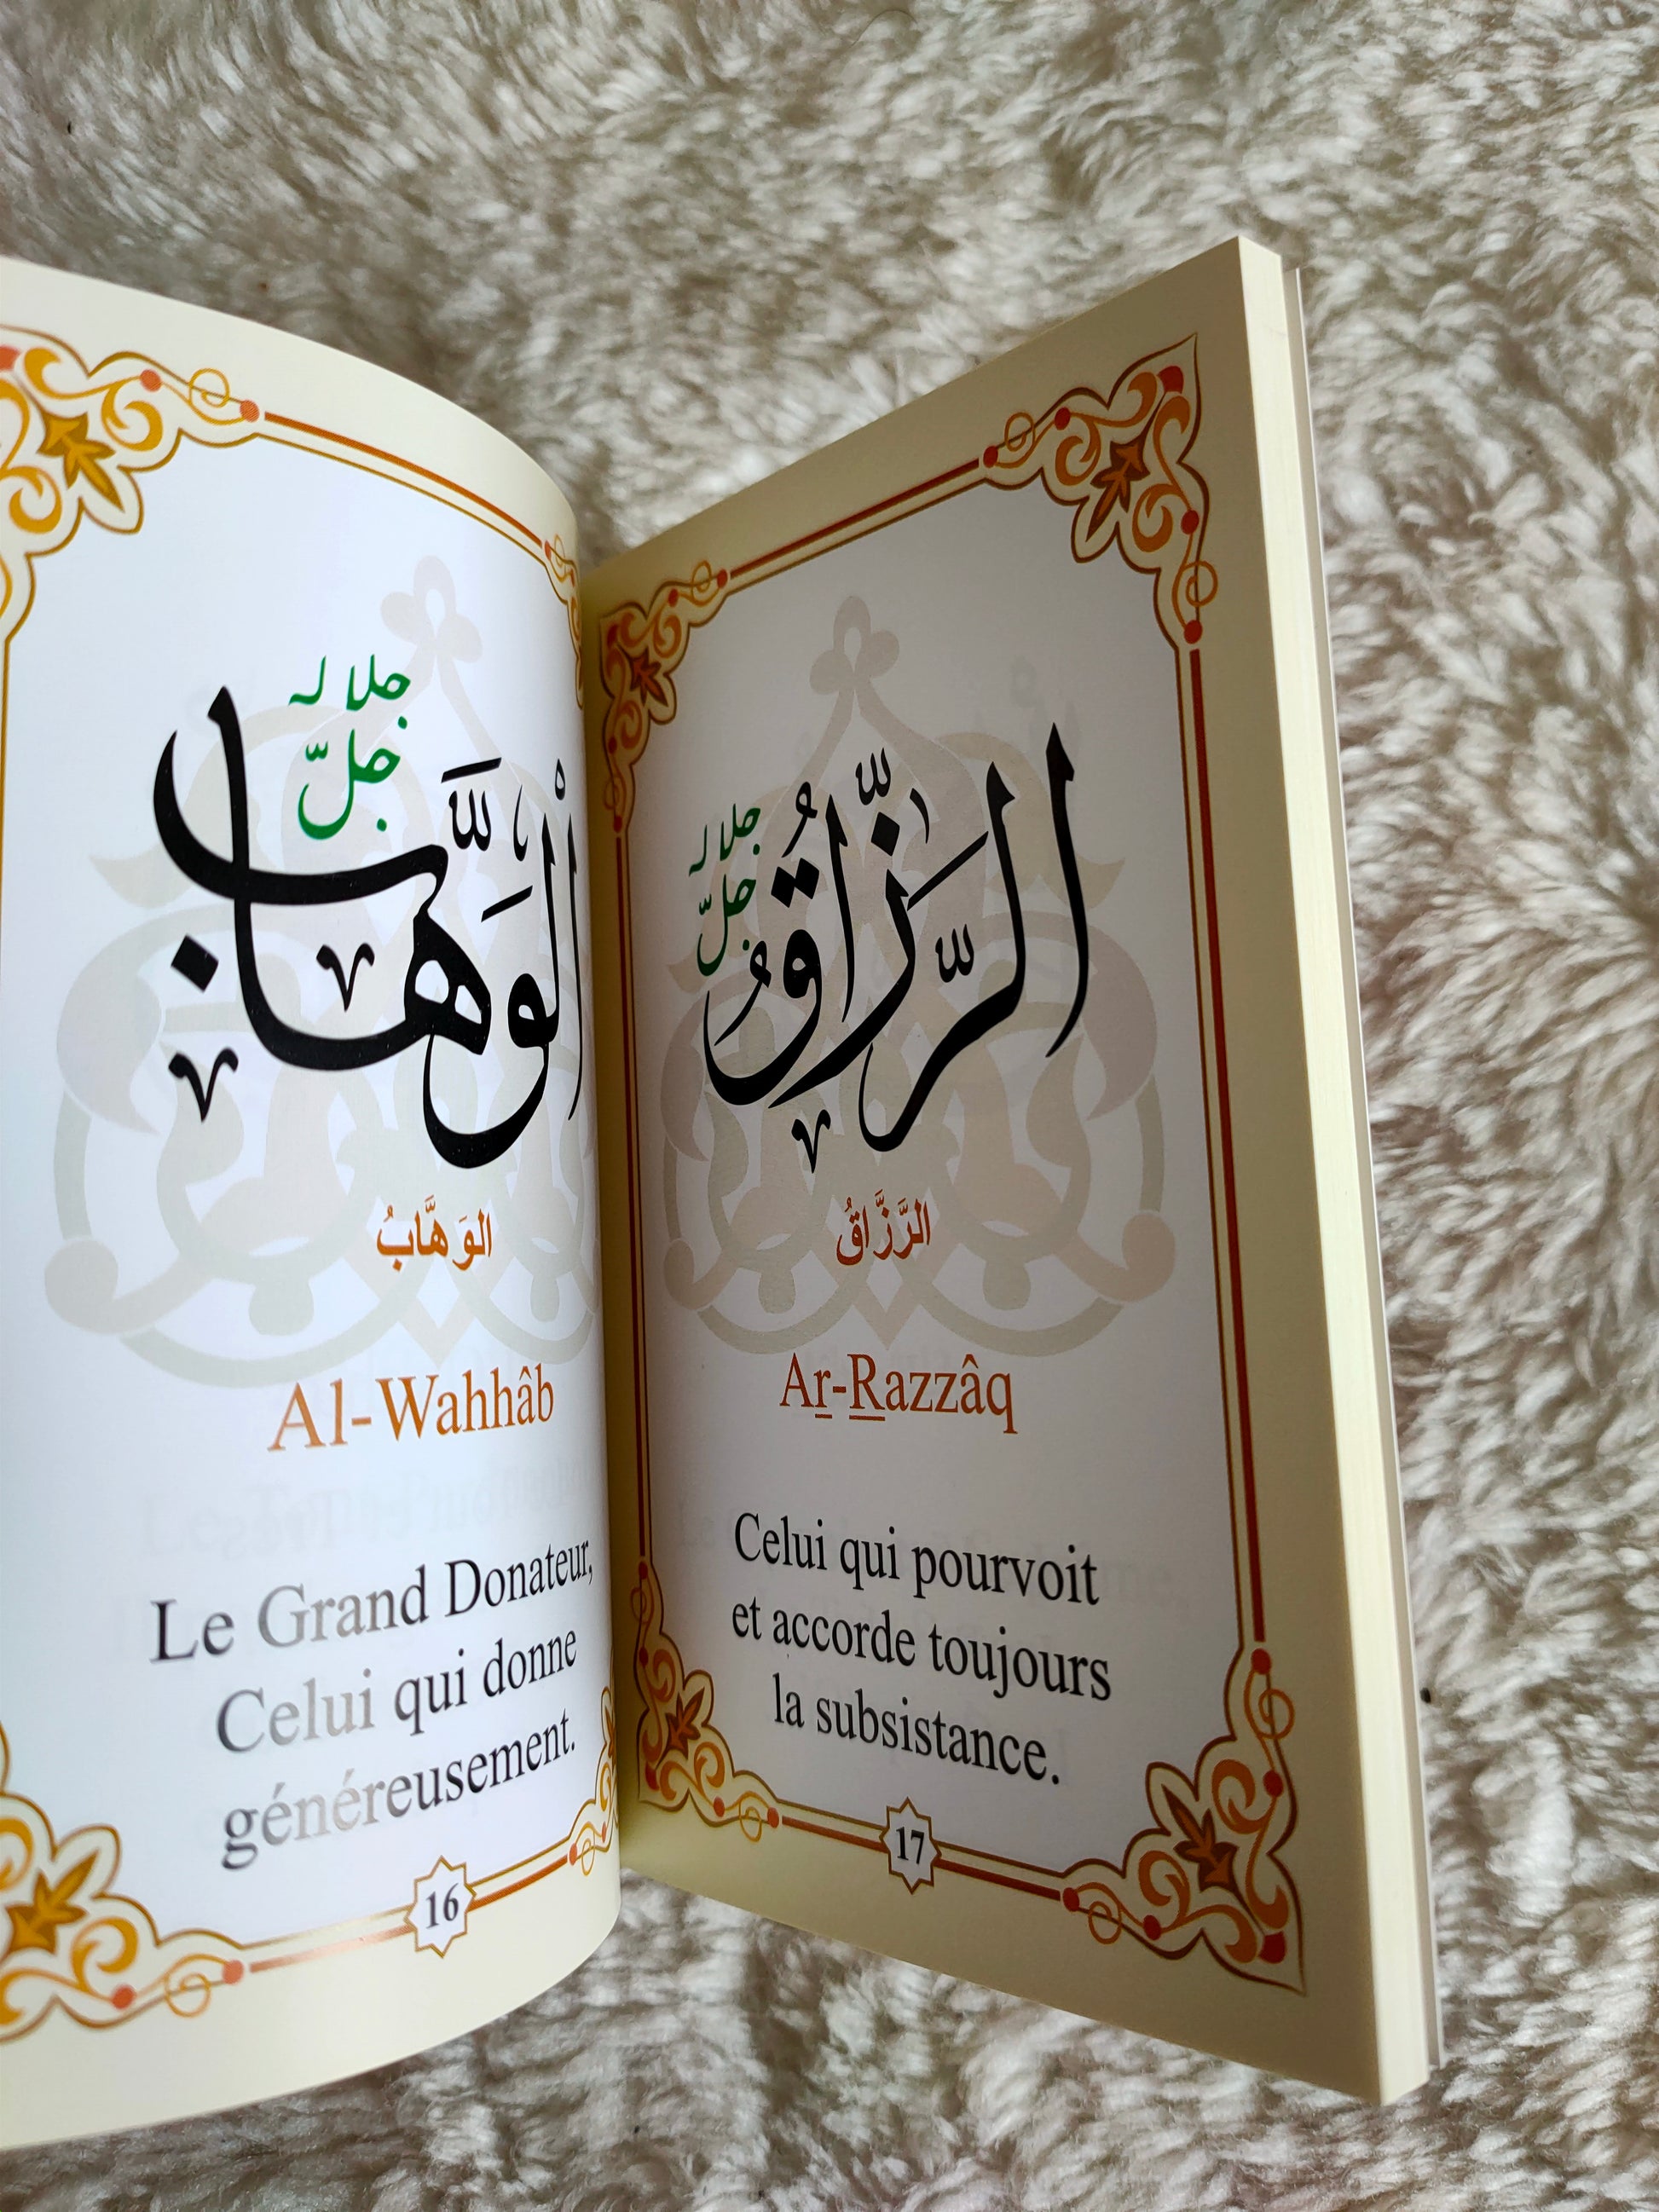 جل جلاله
ٱلْوَهَّابُ
الوَهَّابُ
Al-Wahhâb
Le Grand Donateur,
Celui qui donne
généreusement.
16
جل جلاله
الرَّزَّاقُ
الرَّزَّاقُ
Ar-Razzâq
Celui qui pourvoit
et accorde toujours
la subsistance.
17